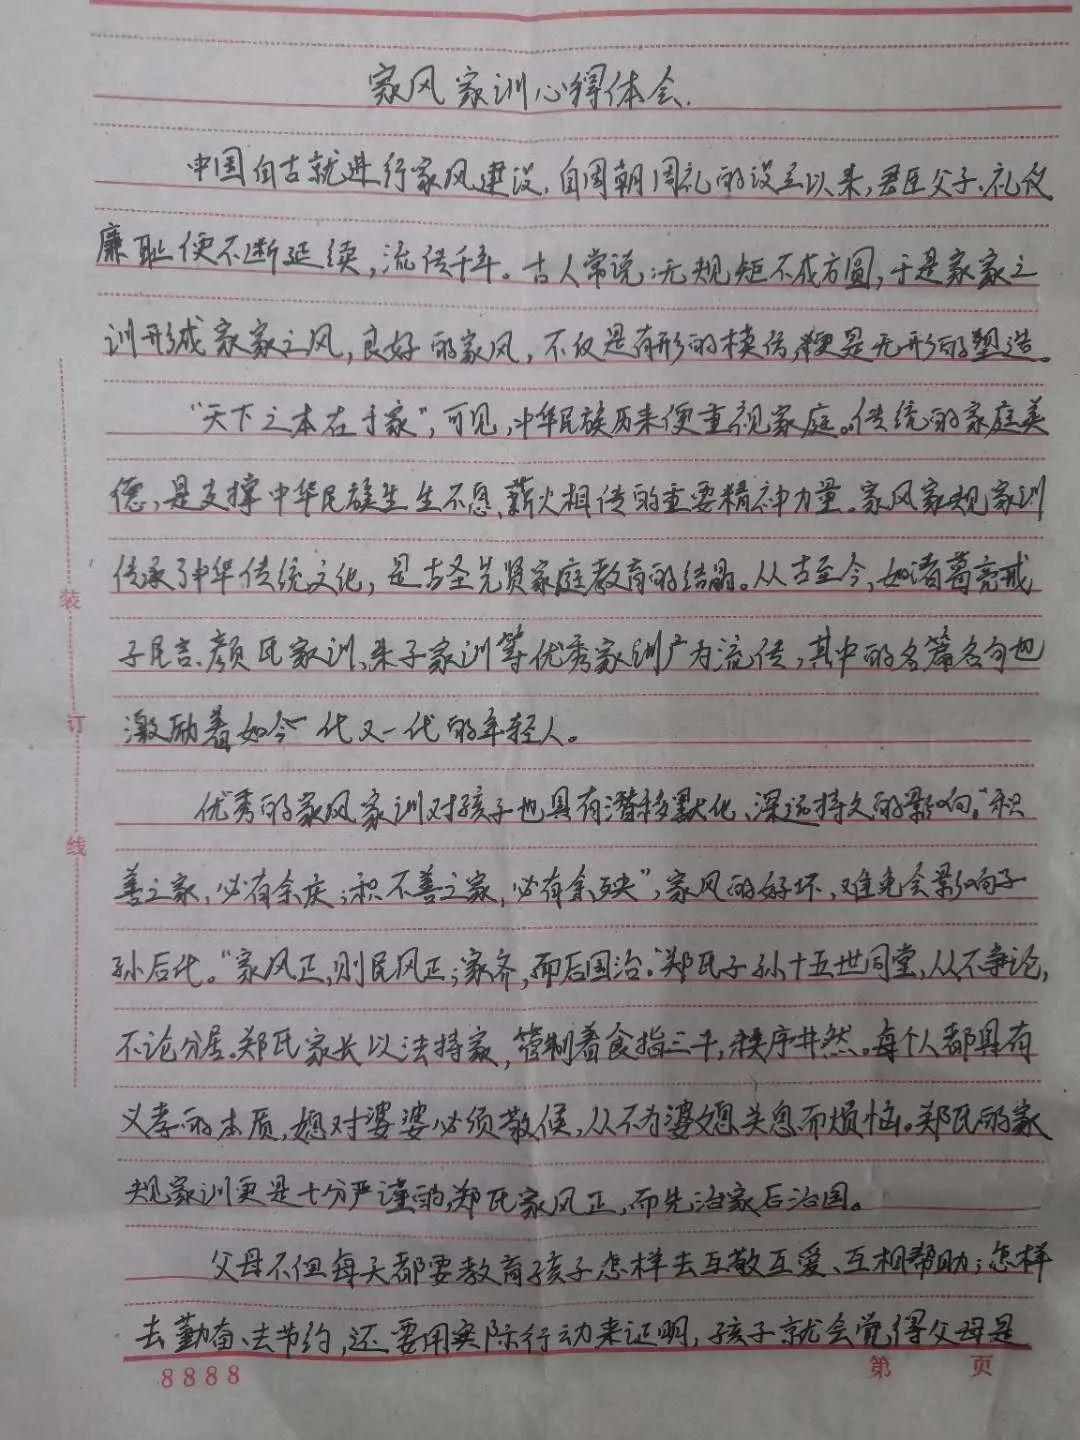 家风家训心得体会.
中国自古就进行家风建设,自周朝周礼的设立以来,君臣父子、礼仪
廉耻便不断延续,流传千年。古人常说:无规矩不成方圆,于是家家之
训形成家家之风,良好的家风,不仅是有形的模仿,更是无形的塑造。
“天下之本在于家”,可见,中华民族历来便重视家庭。传统的家庭美
德,是支撑中华民族生生不息、薪火相传的重要精神力量。家风家规家训
传承了中华传统文化,是古圣先贤家庭教育的结晶。从古至今,如诸葛亮戒
子良言、颜氏家训、朱子家训等优秀家训广为流传,其中的名篇名句也
激励着如今一代又一代的年轻人。
装
订
线
优秀的家风家训对孩子也具有潜移默化、深远持久的影响。“积
善之家,必有余庆;积不善之家,必有余殃”,家风的好坏,难免会影响子
孙后代。“家风正,则民风正;家齐,而后国治。”郑氏子孙十五世同堂,从不争论,
不论分居。郑氏家长以法持家,管制着食指三千,秩序井然。每个人都具有
义孝的本质,媳对婆婆必须敬候,从不为婆媳关息而烦恼。郑氏的家
规家训更是十分严谨的,郑氏家风正,而先治家后治国。
父母不但每天都要教育孩子怎样去互敬互爱、互相帮助;怎样
去勤奋、去节约,还要用实际行动来证明,孩子就会觉得父母是
8888
第 页